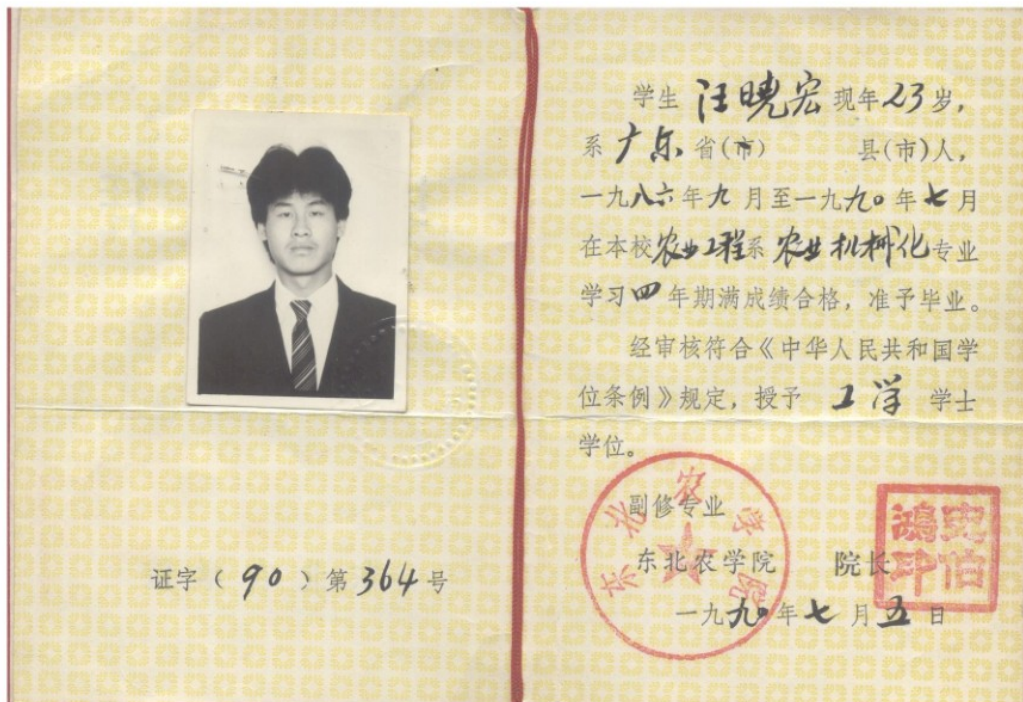 证字（90）第364号
学生 汪晓宏 现年23岁，
系广东省(市) 县(市)人，
一九八六年九月至一九九〇年七月
在本校农业工程系农业机械化专业
学习四年期满成绩合格，准予毕业。
经审核符合《中华人民共和国学
位条例》规定，授予 工学 学士
学位。
副修专业
东北农学院 院长
一九九〇年七月五日
东北农学院